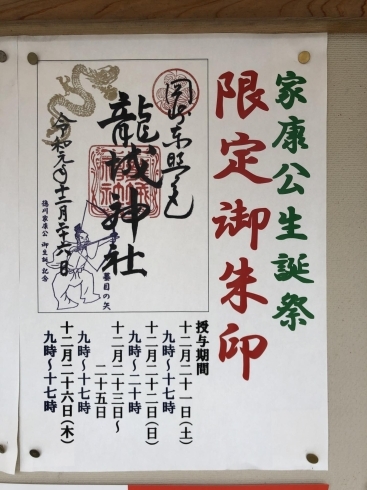 家康公生誕祭
限定御朱印
岡崎東照宮
龍城神社
令和元年十二月二十六日
蟇目の矢
徳川家康公 御生誕 記念
授与期間
十二月二十一日(土)
九時〜十七時
十二月二十二日(日)
九時〜二十時
十二月二十三日〜
二十五
九時〜十七時
十二月二十六日(木)
九時〜十七時